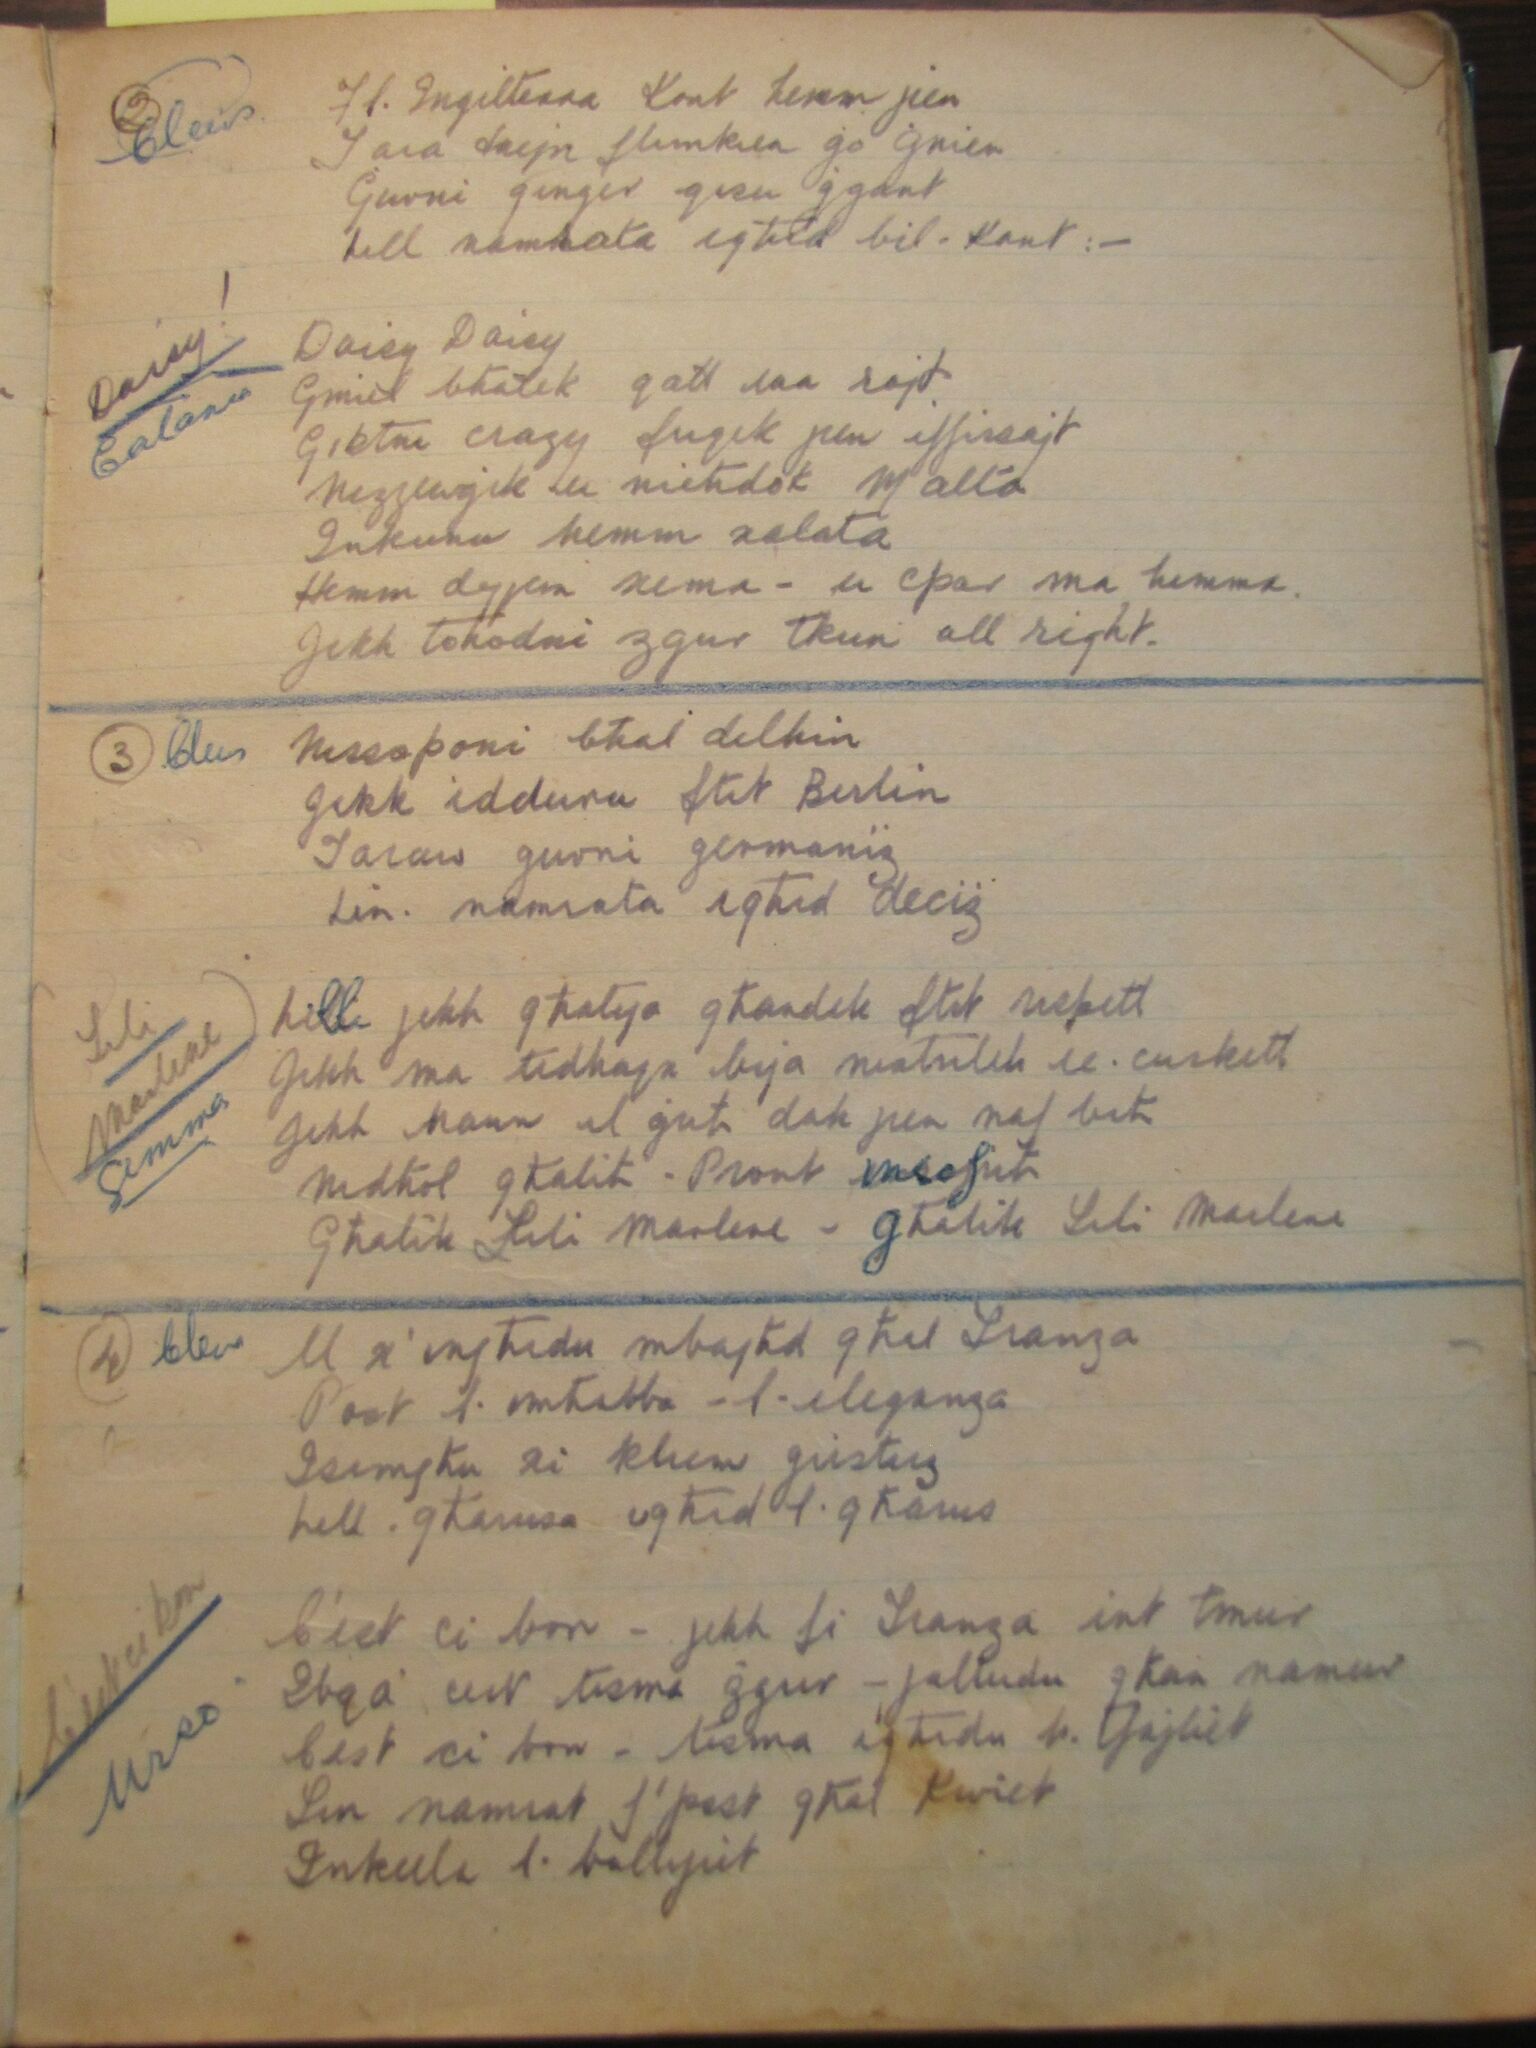 ② Cleus
Fl. Ingilterra Kont hemm jien
Tara tnejn flimkien ġo ġnien
Guvni ginger
hell namrata igħid bil. Kant :—
Daisy!
Catania
Daisy Daisy
Gmiel bħalek qatt ma rajt
Ġietni crazy fuqek jien iffissajt
Nizzewġik u nieħdok Malta
Inkunu hemm xalata
Hemm dejjem xema - u cpar ma hemma.
Jekk toħodni zgur tkun all right.
③ Cleus
Nissoponi bħal delhin
Jekk idduru ftit Berlin
Taraw guvni germaniż
lin. namrata igħid deciż
Lili Marlene
Gemma
Lilli jekk għalija għandek ftit rispett
Jekk ma tidhaqx bija neħilek ic. cuskett
Jekk Maun il ġuħ dak jien naf bih
Nidħol għalih - Pront insofrih
Għalik Lili Marlene - għalik Lili Marlene
④ Cleus
U x'ingħidu mbagħd għal Franza
Post l. imħabba - l. eleganza
Tisimgħu xi kliem ġustuż
hell. għarusa igħid l. għarus
C'est ci bon
Urso
C'est ci bon - jekk fi Franza int tmur
Ibqa' cert tisma żgur - jaltudu għan namur
C'est ci bon - tisma igħidu h. Għajliet
Lin namrat f'post għal Kwiet
Inkella l. ballijiet